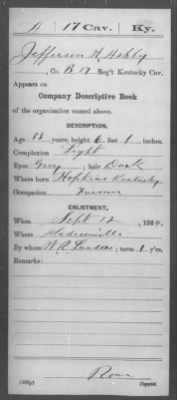 A 17 Cav. Ky.
Jefferson H Ashby
Co. B 17 Reg't Kentucky Cav.
Appears on
Company Descriptive Book
of the organization named above.
DESCRIPTION.
Age 23 years; height 6 feet 1 inches.
Complexion Light
Eyes Grey; hair Dark
Where born Hopkins Kentucky
Occupation Farmer
ENLISTMENT.
When Sept 12, 1864.
Where Madisonville
By whom W R; term 1 y'rs.
Remarks:
Copyist.